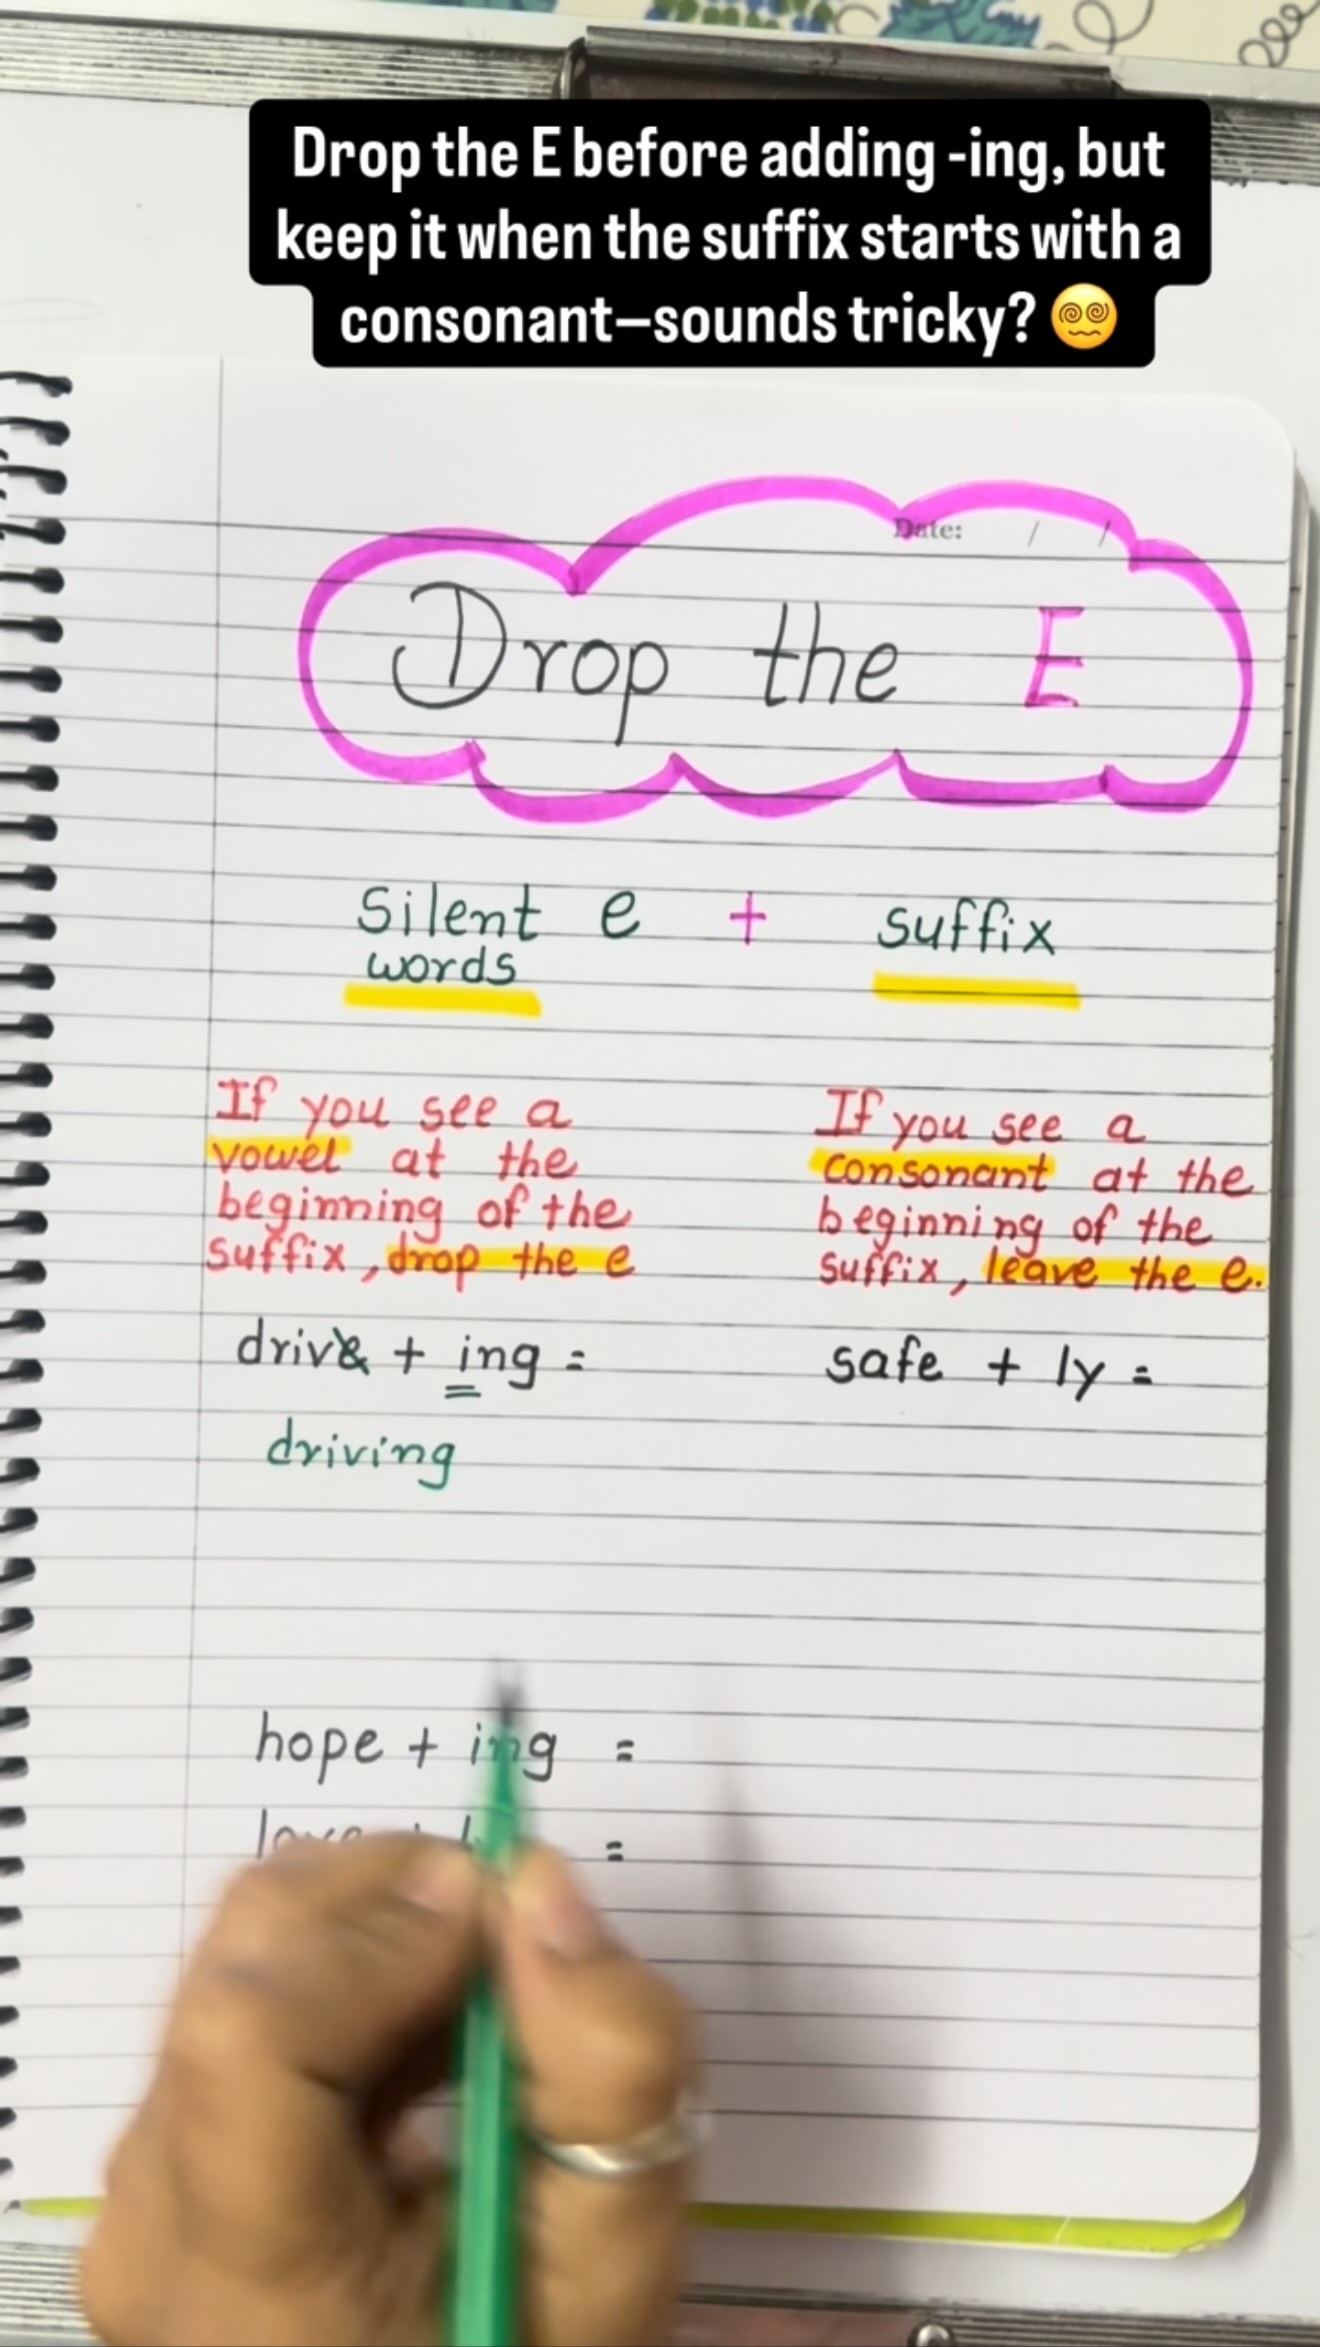 Drop the E before adding -ing, but
keep it when the suffix starts with a
consonant–sounds tricky? 😵‍💫
Date: / /
Drop the E
Silent e + suffix
words
If you see a
vowel at the
beginning of the
suffix, drop the e
drive + ing =
driving
If you see a
consonant at the
beginning of the
suffix, leave the e.
safe + ly =
hope + ing =
=